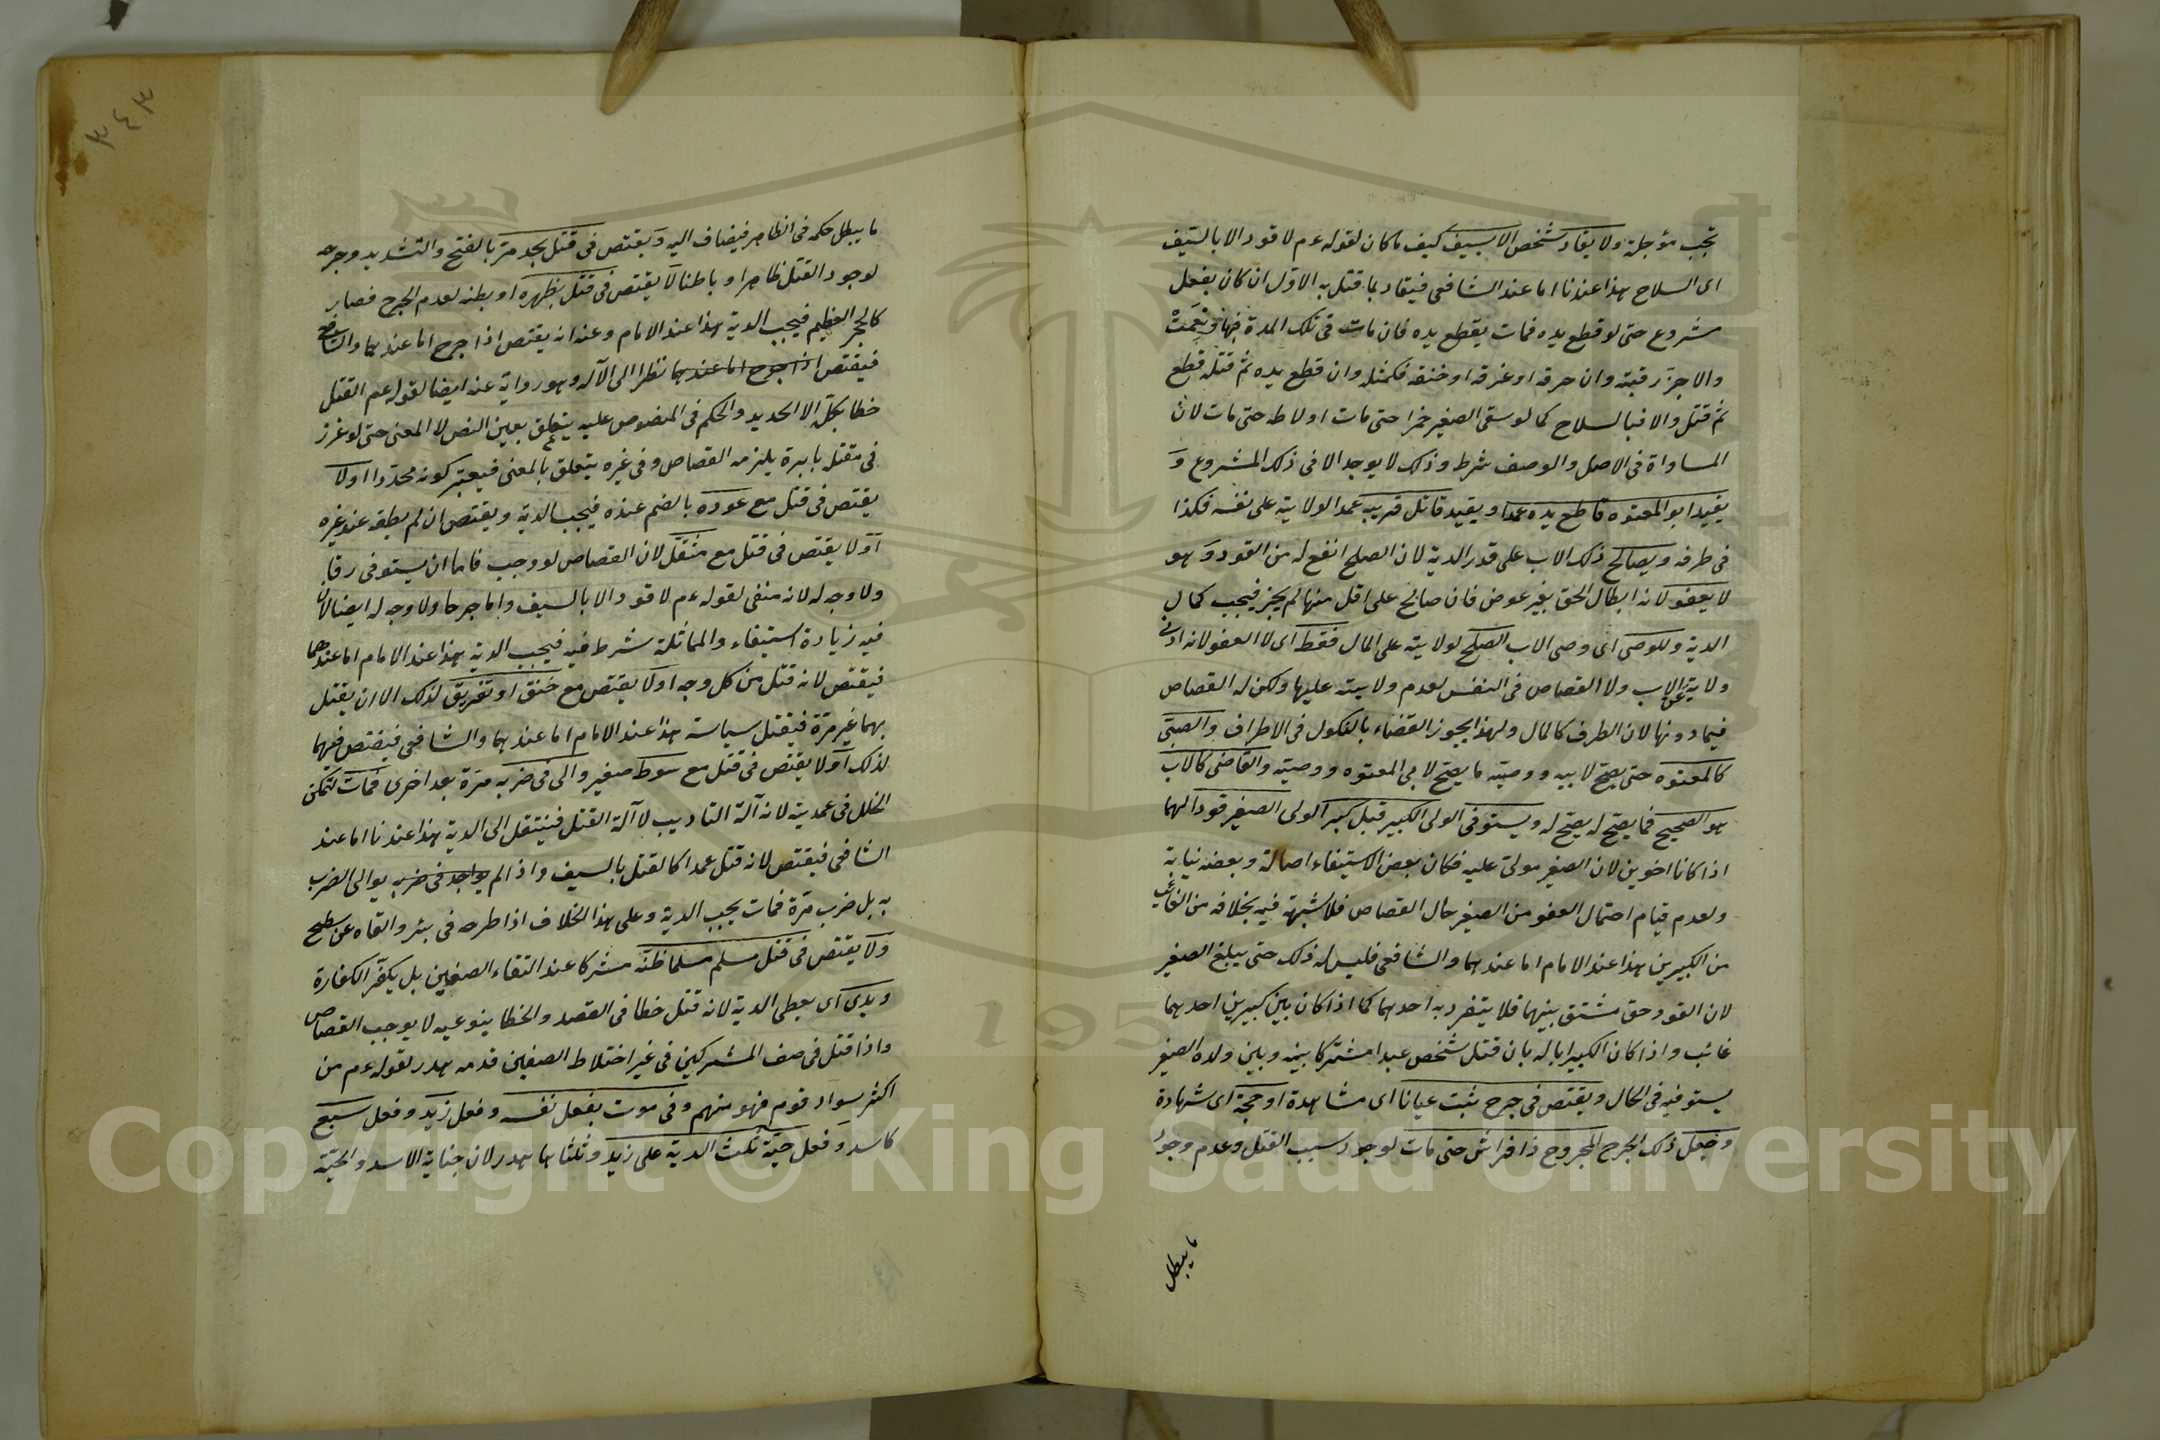 تجب مؤجلة ولا يقاد شخص الا بسيف كيف ما كان لقوله عم لا قود الا بالسيف
اى السلاح هذا عندنا اما عند الشافعى فيقاد بما قتل به الاول ان كان بفعل
مشروع حتى لو قطع يده فمات يقطع يده فان مات فى تلك المدة فبها
والا جز رقبته وان حرقه او غرقه او خنقه فكمثله وان قطع يده ثم قتله قطع
ثم قتل والا فبالسلاح كما لو سقى الصغير خمرا حتى مات او لاطه حتى مات لان
المساواة فى الاصل والوصف شرط وذلك لا يوجد الا فى ذلك المشروع و
يقيد ابو المعتوه قاطع يده عمدا ويقيد قاتل قريبه عمدا لولايته على نفسه فكذا
فى طرفه ويصالح ذلك الاب على قدر الدية لان الصلح انفع له من القود و هو
لا يعفو لانه ابطال الحق بغير عوض فان صالح على اقل منها لم يجز فيجب كمال
الدية وللوصى اى وصى الاب الصلح لولايته على المال فقط اى لا العفو لانه ادنى
ولاية من الاب ولا القصاص فى النفس لعدم ولايته عليها ولكن له القصاص
فيما دونها لان الطرف كالمال ولهذا يجوز القضاء بالنكول فى الاطراف والصبى
كالمعتوه حتى يصح لابيه ووصيه ما يصح لابى المعتوه ووصيه والقاضى كالاب
هو الصحيح فما يصح له يصح له ويستوفى الولى الكبير قبل كبر الولى الصغير قودا لهما
اذا كانا اخوين لان الصغير مولى عليه فكان بعض الاستيفاء اصالة وبعضه نيابة
ولعدم قيام احتمال العفو من الصغير حال القصاص فلا شبهة فيه بخلافه من الغائب
من الكبيرين هذا عند الامام اما عندهما والشافعى فليس له ذلك حتى يبلغ الصغير
لان القود حق مشترك بينهما فلا يتفرد به احدهما كما اذا كان بين كبيرين احدهما
غائب واذا كان الكبير ابا له بان قتل شخص عبدا مشتركا بينه وبين ولده الصغير
يستوفيه فى الحال ويقتص فى جرح ثبت عيانا اى مشاهدة او حجة اى شهادة
وجعل ذلك الجرح المجروح ذا فراش حتى مات لوجود سبب القتل وعدم وجود
ما يبطل
٣٤٣
ما يبطل حكمه فى الظاهر فيضاف اليه ويقتص فى قتل بحد مر بالفتح والتشديد وجرحه
لوجود القتل ظاهرا وباطنا لا يقتص فى قتل بظهره او بطنه لعدم الجرح فصار
كالحجر العظيم فيجب الدية هذا عند الامام وعنه انه يقتص اذا جرح اما عندهما والشافعى
فيقتص اذا جرح اما عندهما نظرا الى الآلة وهو رواية عنه ايضا لقوله عم القتل
خطا بكل الا الحديد والحكم فى المنصوص عليه يتعلق بعين النص لا المعنى حتى لو غرز
فى مقتله بابرة يلزمه القصاص وفى غيره يتعلق بالمعنى فيعتبر كونه محددا اولا
يقتص فى قتل مع عوده بالضم عنده فيجب الدية ويقتص ان لم يطقه عند غيره
او لا يقتص فى قتل مع مثقل لان القصاص لو وجب فاما ان يستوفى رقابا
ولا وجه له لانه منفى لقوله عم لا قود الا بالسيف واما جرحا ولا وجه له ايضا لان
فيه زيادة استيفاء والمماثلة شرط فيه فيجب الدية هذا عند الامام اما عندهما
فيقتص لانه قتل من كل وجه او لا يقتص مع خنق او تغريق لذلك الا ان يقتل
بهما غير مرة فيقتل سياسة هذا عند الامام اما عندهما والشافعى فيقتص فيهما
لذلك او لا يقتص فى قتل مع سوط صغير والى فى ضربه مرة بعد اخرى فمات لتمكن
الخلل فى عمديته لانه آلة التاديب لا آلة القتل فينتقل الى الدية هذا عندنا اما عند
الشافعى فيقتص لانه قتل عمدا كالقتل بالسيف واذا لم يواجد فى ضربه يوالى الضرب
به بل ضرب مرة فمات يجب الدية وعلى هذا الخلاف اذا طرحه فى بئر والقاه عن سطح
ولا يقتص فى قتل مسلم مسلما ظنه مشركا عند التقاء الصفين بل يكفر الكفارة
ويدى اى يعطى الدية لانه قتل خطا فى القصد والخطا بنوعيه لا يوجب القصاص
واذا قتل فى صف المشركين فى غير اختلاط الصفين فدمه هدر لقوله عم من
اكثر سواد قوم فهو منهم وفى موت بفعل نفسه وفعل زيد وفعل سبع
كاسد وفعل حية ثلث الدية على زيد وثلثاها هدر لان جناية الاسد والحية
Copyright © King Saud University
195